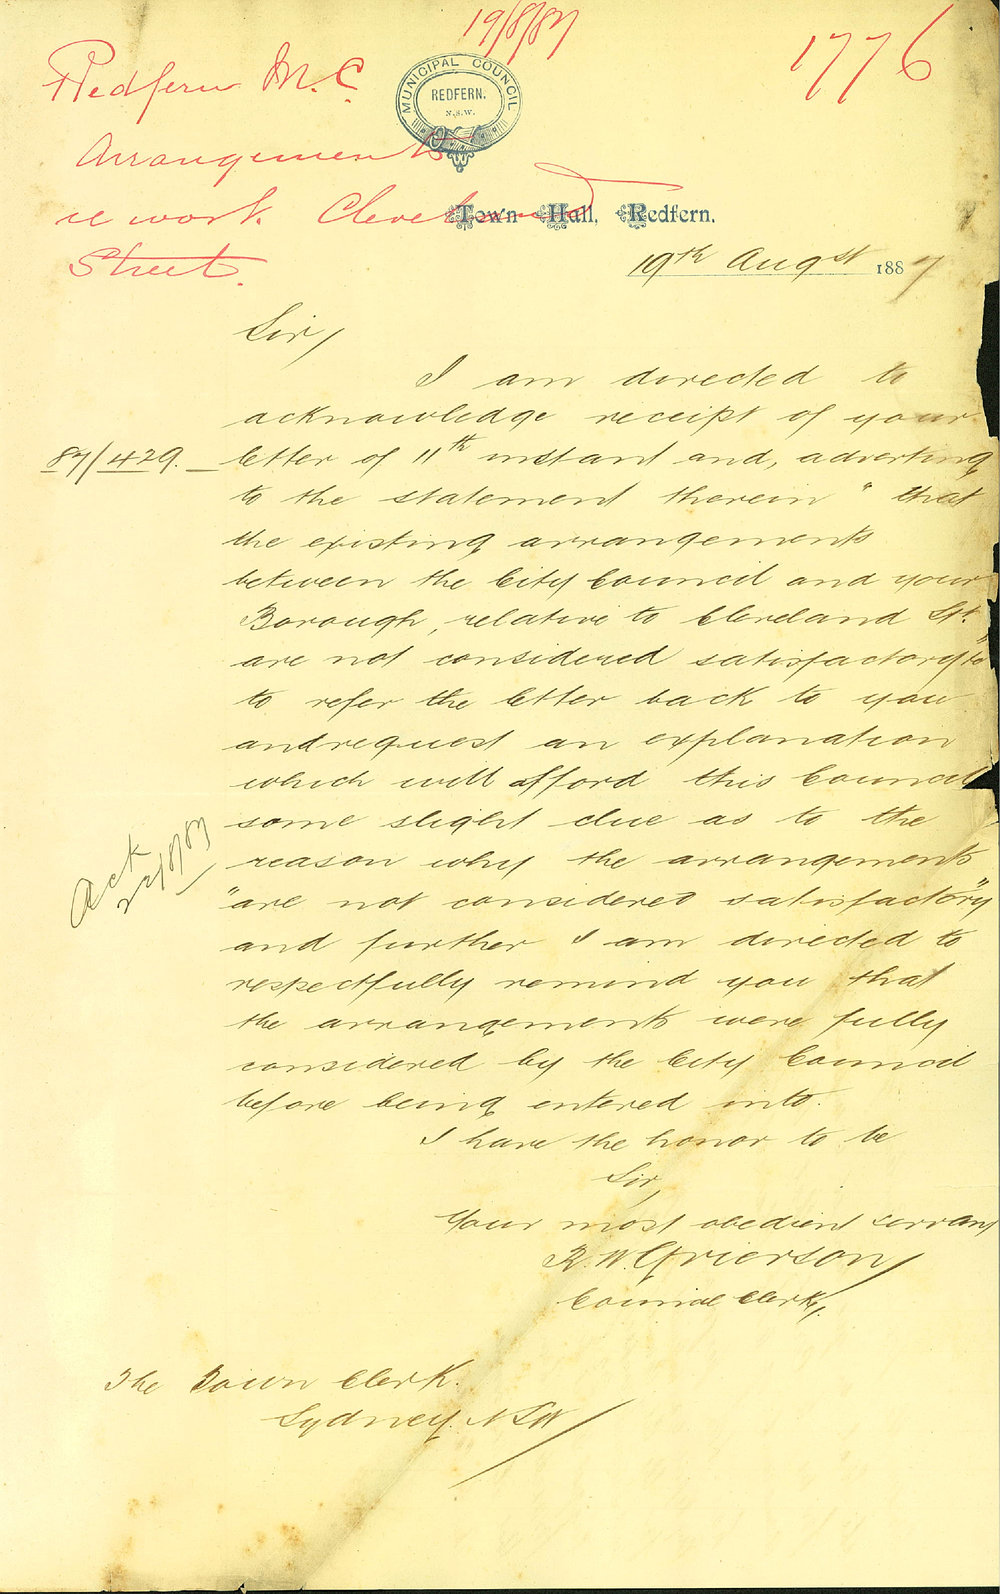 19/8/87
1776
Redfern M.C.
MUNICIPAL COUNCIL
REDFERN.
N.S.W.
Arrangements
re work Cleveland
Street.
Town Hall, Redfern.
19th Augst 1887
Sir,
I am directed to
acknowledge receipt of your
87/429. letter of 11th instant and, adverting
to the statement therein "that
the existing arrangements
between the City Council and your
Borough, relative to Cleveland St.
are not considered satisfactory" to
to refer the letter back to you
and request an explanation
which will afford this Council
some slight clue as to the
reason why the arrangements
"are not considered satisfactory"
and further I am directed to
respectfully remind you that
the arrangements were fully
considered by the City Council
before being entered into.
I have the honor to be
Sir,
Your most obedient servant
R. W. Grierson
Council Clerk,
Ack
22/8/87
The Town Clerk.
Sydney. NSW